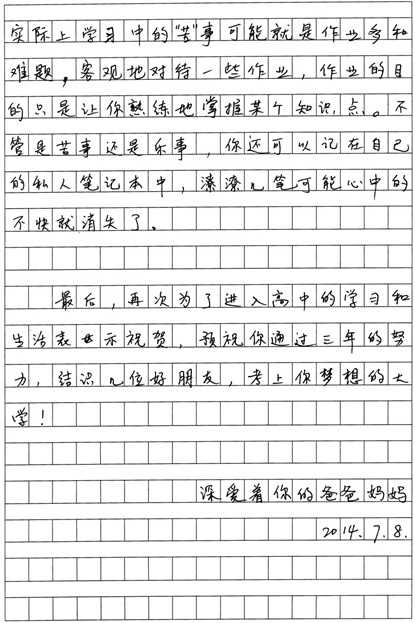 实际上学习中的“苦”事可能就是作业多和
难题，客观地对待一些作业，作业的目
的只是让你熟练地掌握某个知识点。不
管是苦事还是乐事，你还可以记在自己
的私人笔记本中，潦潦几笔可能心中的
不快就消失了。
最后，再次为了进入高中的学习和
生活表示祝贺，预祝你通过三年的努
力，结识几位好朋友，考上你梦想的大
学！
深爱着你的爸爸妈妈
2014.7.8.